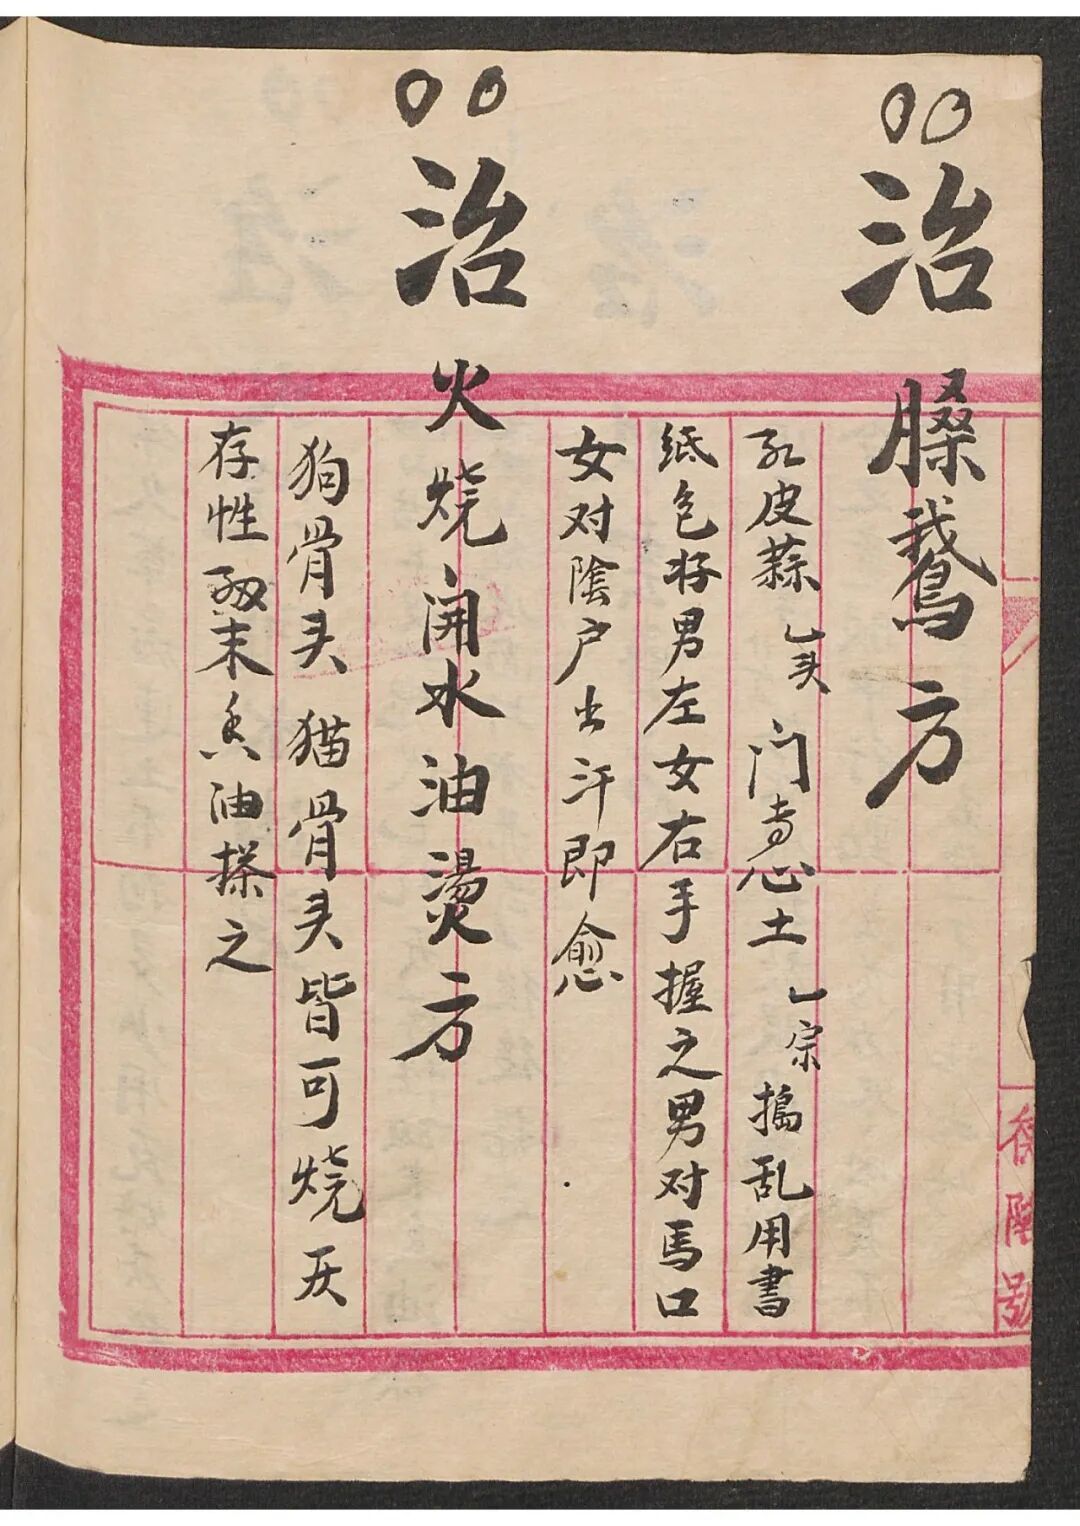 治臊鹅方
红皮蒜乚头门壳心土一宗搗乱用書
纸包好男左女右手握之男对馬口
女对陰户出汗即愈
治火烧開水油燙方
狗骨头猫骨头皆可烧灰
存性研末香油搽之